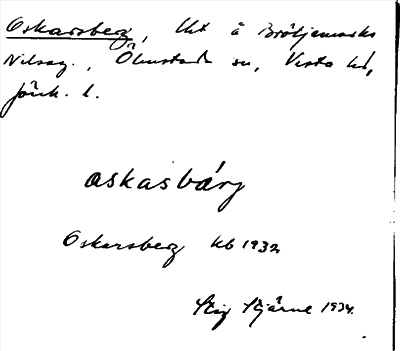 Oskarsberg, lht å Brötjemarks
Nilsag., Ölmstads sn, Vista hd,
Jönk. l.
oskasbárj
Oskarsberg kb 1932
Stig Stjärne 1934.